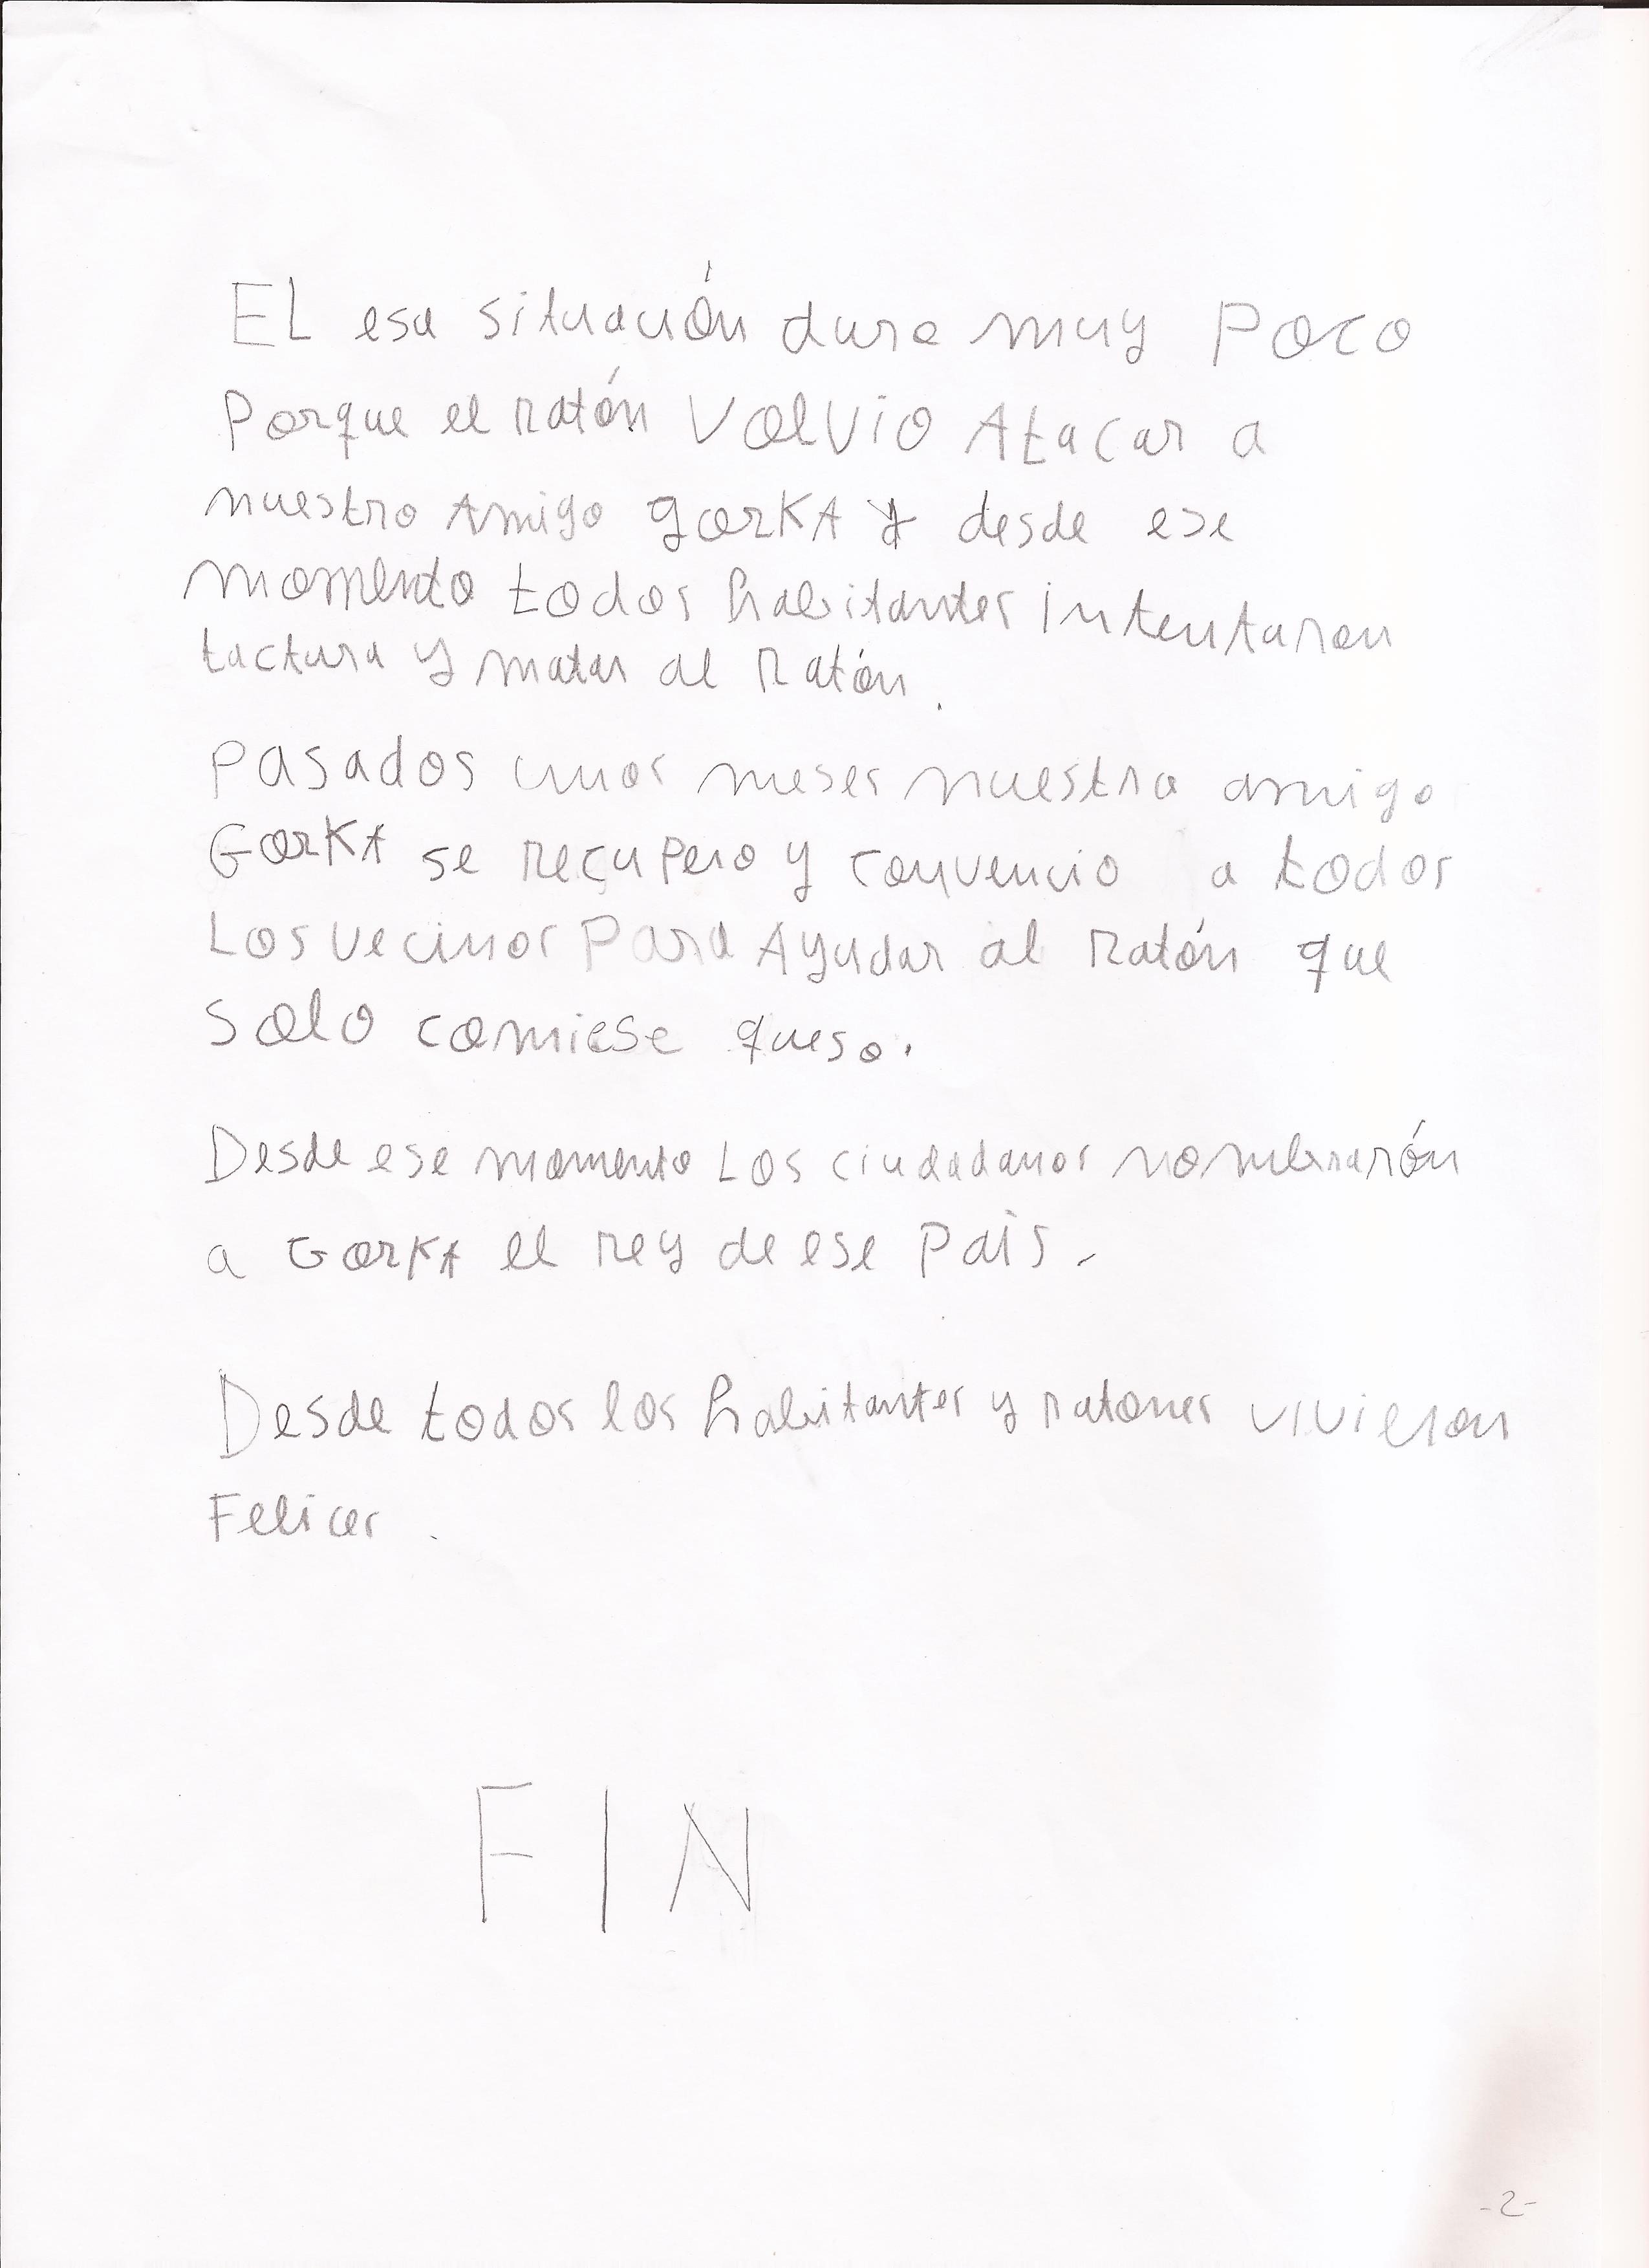 EL esa situación duro muy Poco
Porque el ratón Volvio Atacar a
nuestro Amigo gorKA Y desde ese
momento todos habitantes intentaron
tactura y matar al Ratón.
Pasados unos meses nuestro amigo
GorKA se recupero y convencio a todos
Los vecinos Para Ayudar al Ratón que
solo comiese queso.
Desde ese momento Los ciudadanos nombrarón
a GorKA el rey de ese Pais.
Desde todos los habitantes y ratones vivieron
Felices.
FIN
-2-